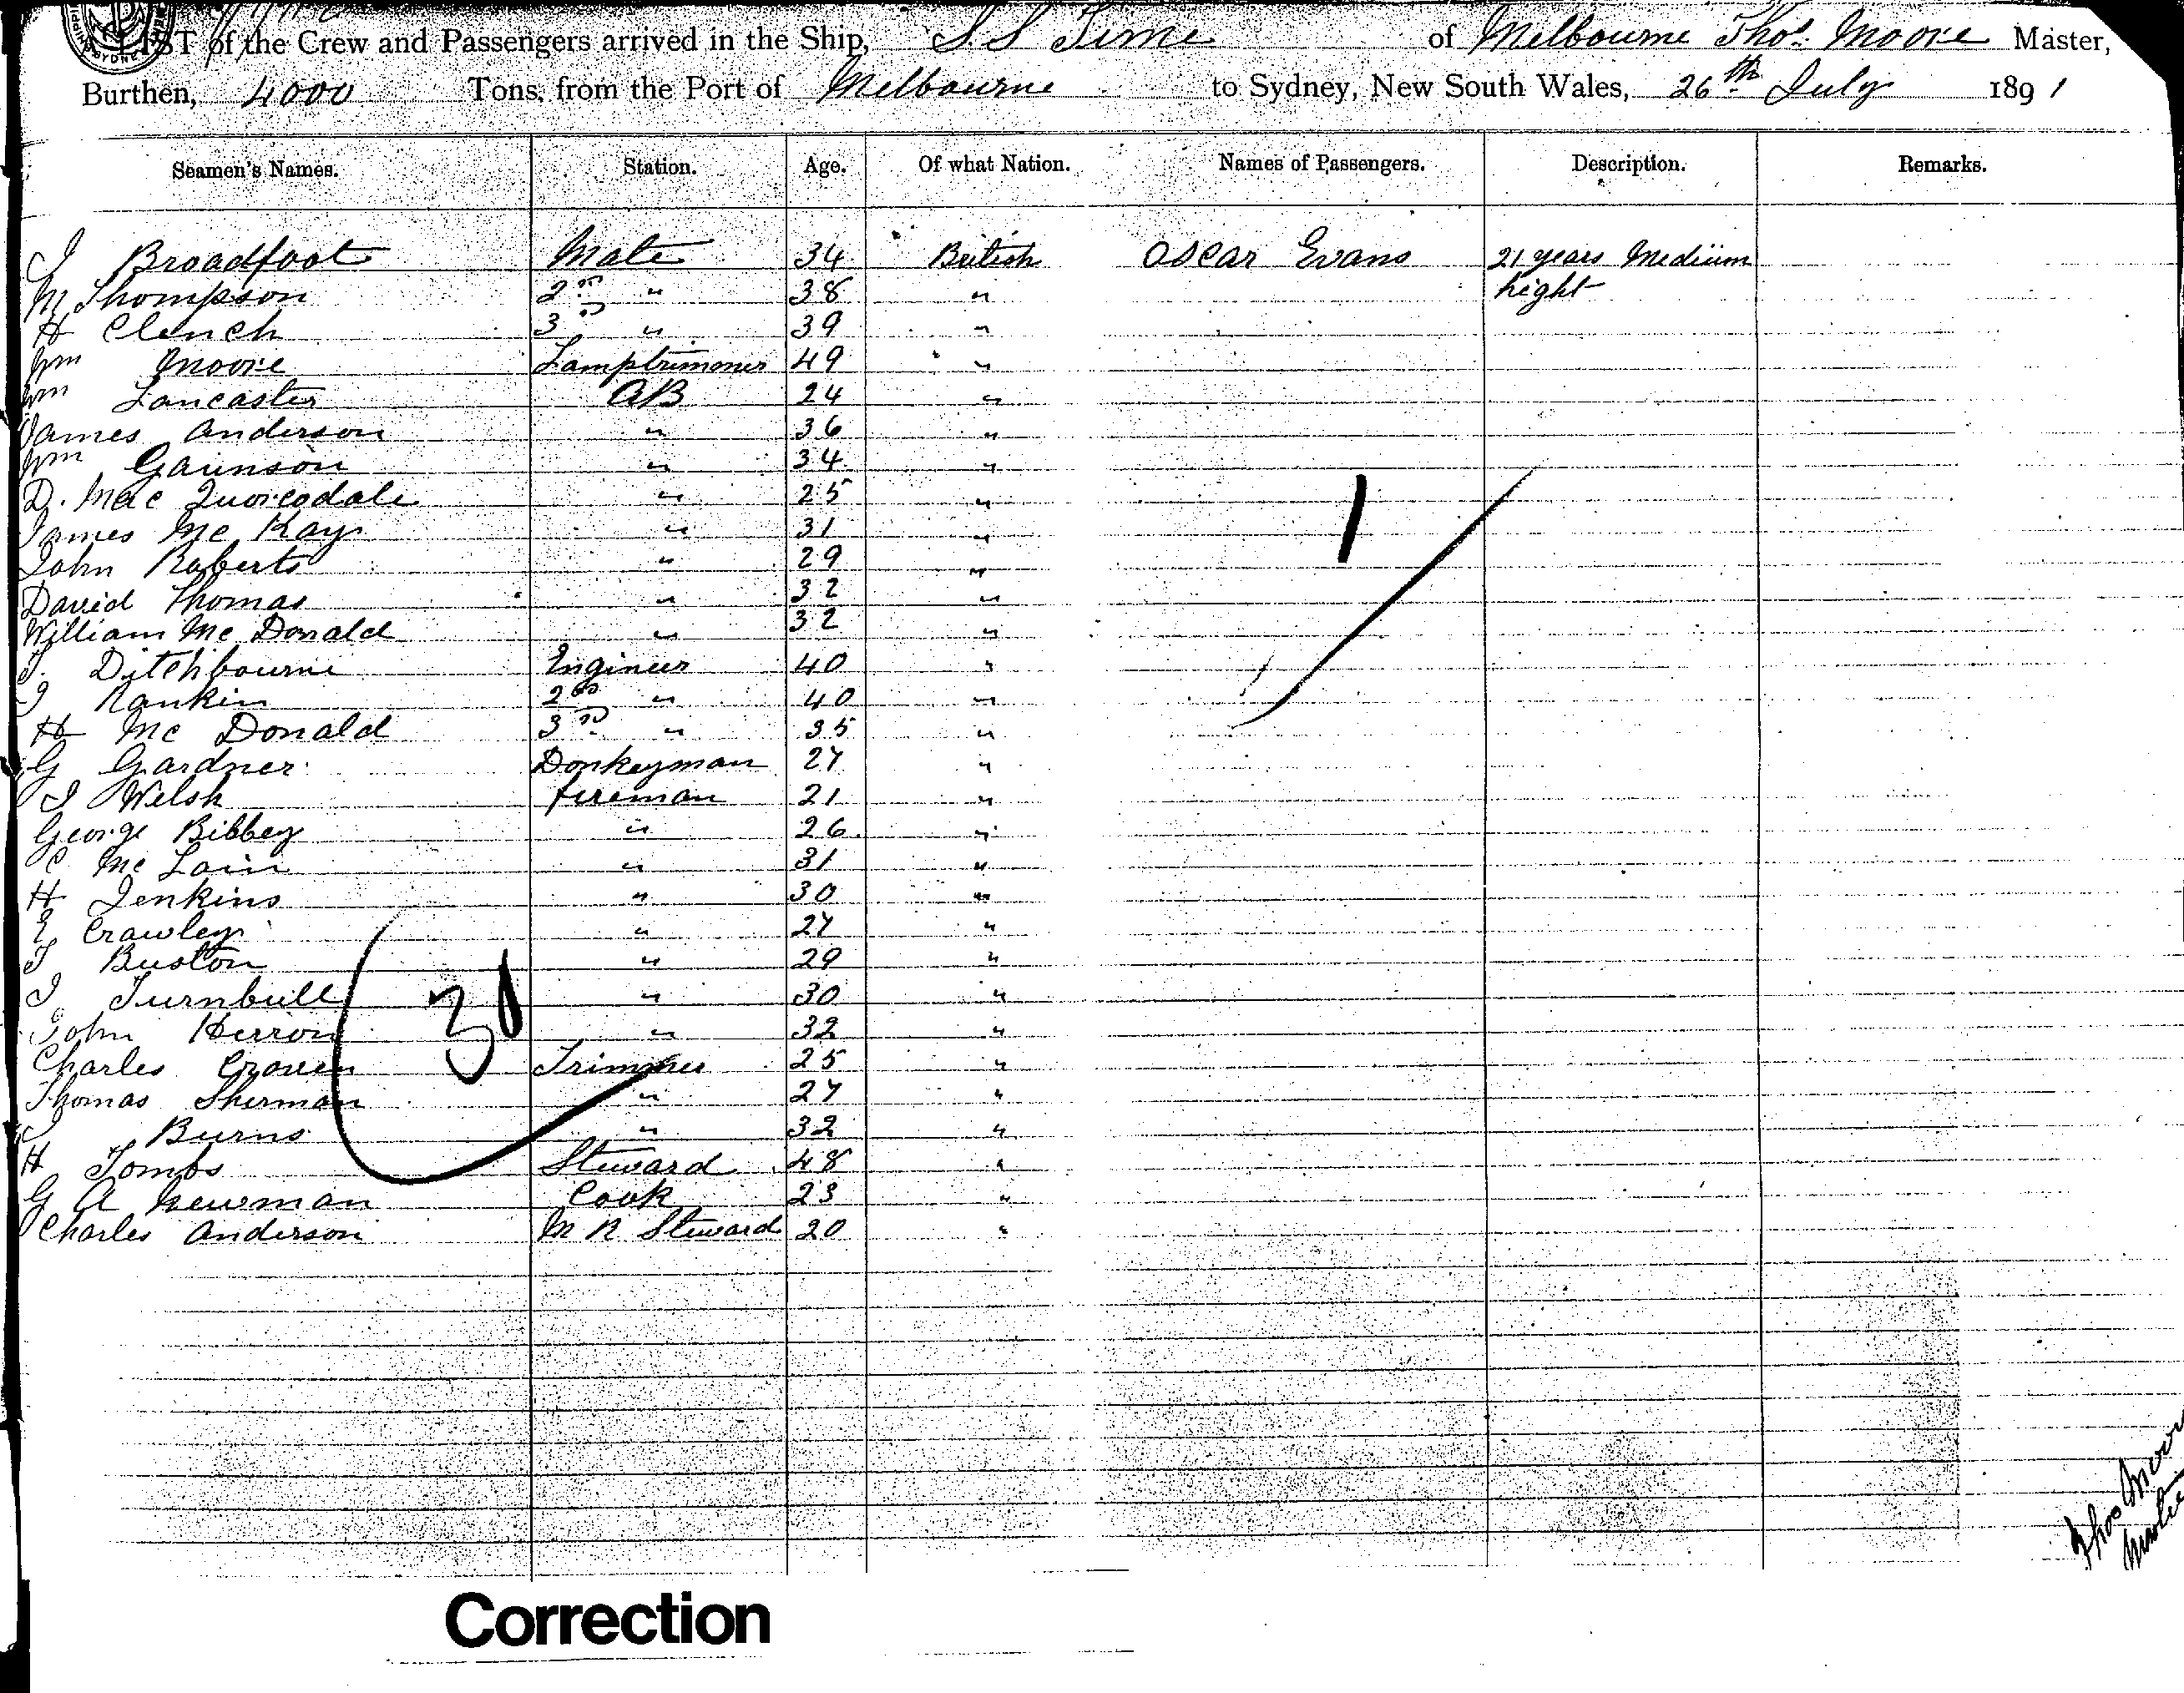 LIST of the Crew and Passengers arrived in the Ship, S.S Time of Melbourne Thos. Moore Master,
Burthen, 4000 Tons, from the Port of Melbourne to Sydney, New South Wales, 26th July 1891
Seamen's Names. Station. Age. Of what Nation. Names of Passengers. Description. Remarks.
J Broadfoot Mate 34 British Oscar Evans 21 years Medium
M Thompson 2nd " 38 " hight
H Clench 3rd " 39 "
Wm Moore Lamptrimmer 49 "
Wm Lancaster AB 24 "
James Anderson " 36 "
Wm Gaunson " 34 "
D. Mac " 25 "
James Mc Kay " 31 "
John Roberts " 29 "
David Thomas " 32 "
William Mc Donald " 32 "
T. Ditchbourne Engineer 40 "
J Rankin 2nd " 40 "
H Mc Donald 3rd " 35 "
G Gardner Donkeyman 27 "
J Welsh fireman 21 "
George Bibbey " 26 "
C Mc Lain " 31 "
H Jenkins " 30 "
E Crawley " 27 "
T Buston " 29 "
J Turnbull " 30 "
John Herron " 32 "
Charles Craven Trimmer 25 "
Thomas Sherman " 27 "
J Burns " 32 "
H Tombs Steward 48 "
G A Newman Cook 23 "
Charles Anderson M R Steward 20 "
1
30
Thos Moore
Master
Correction